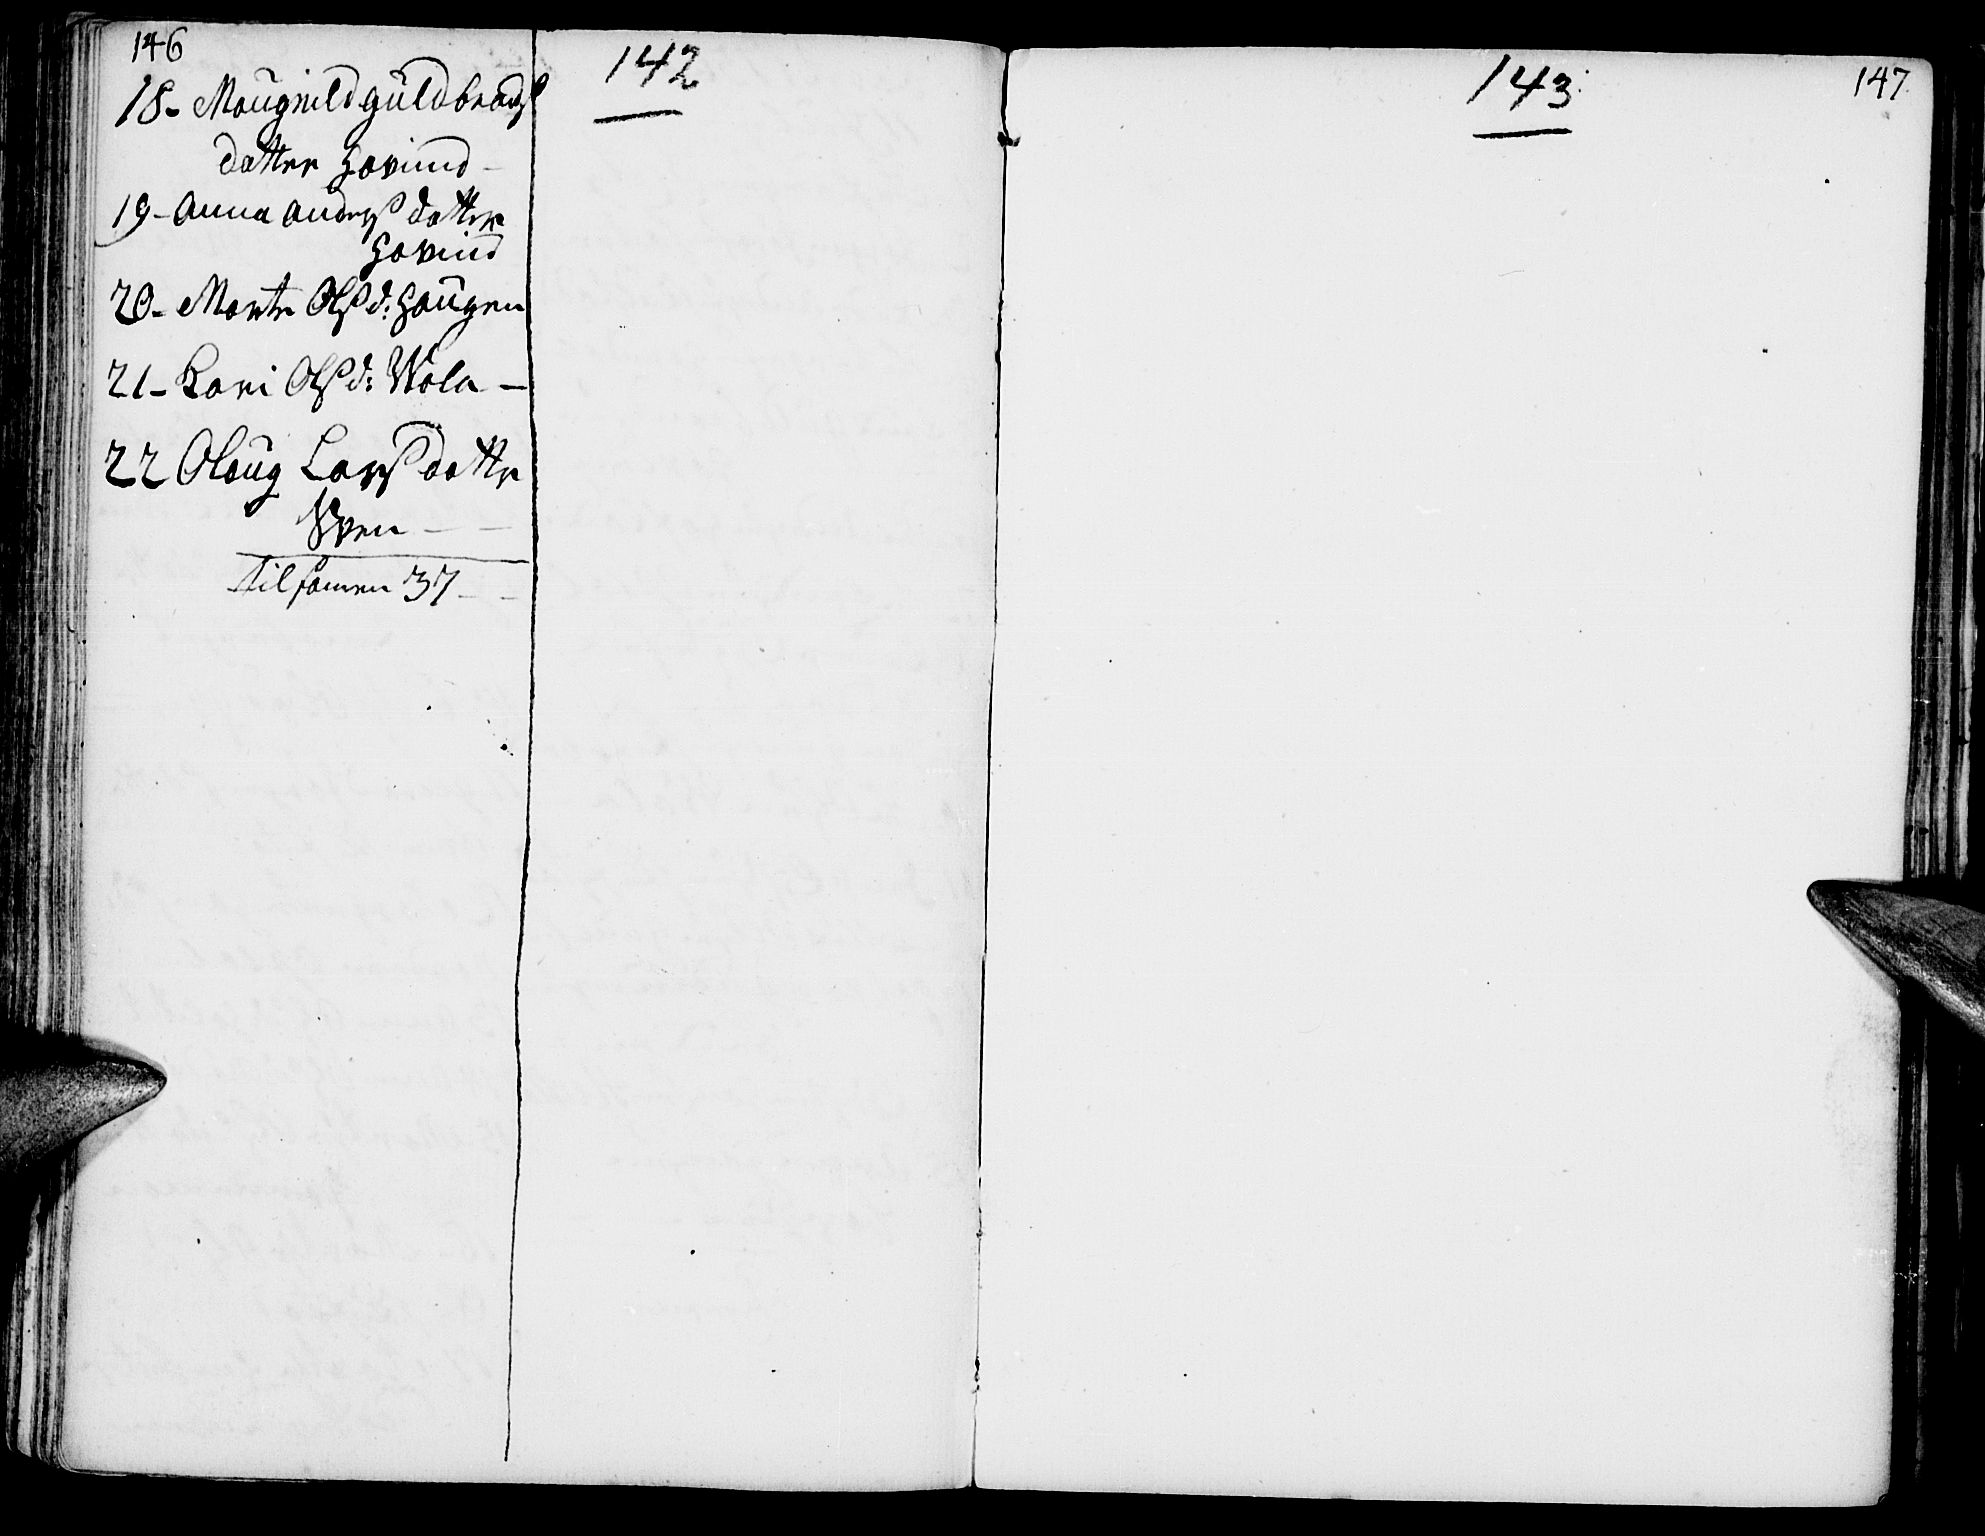 146
142
18- Maugnild Guldbrands
datter Hovind -
19- Anna Anders datter
Hovind
20- Marte Ols d: Haugen
21- Kari Ols d: Wola -
22 Oloug Lars datter
Sven - -
Tilsamen 37 - -
143
147